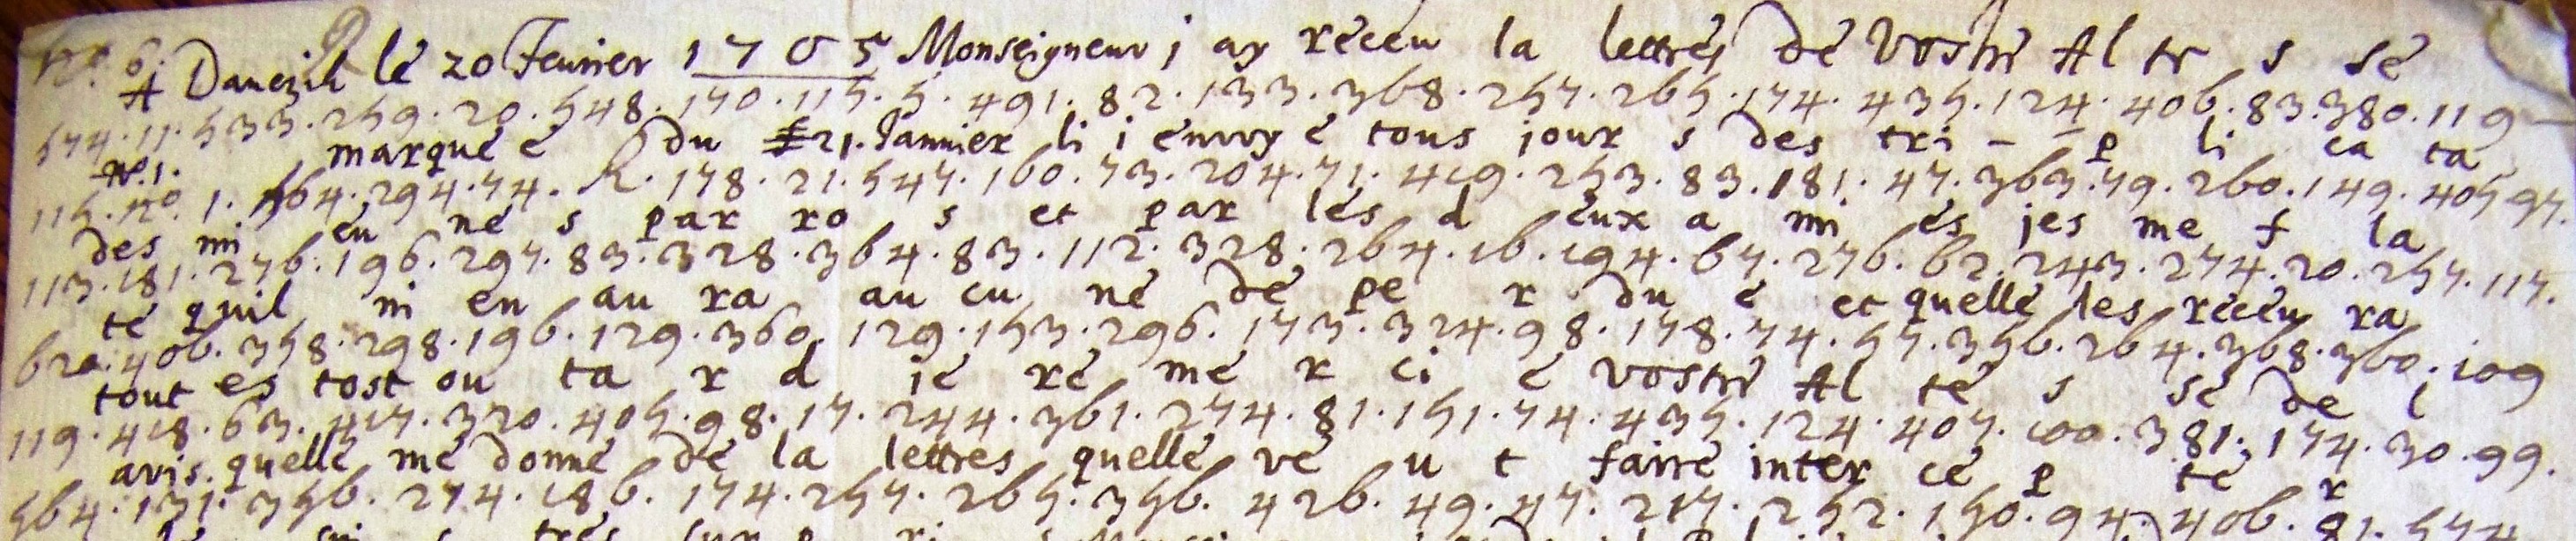 No. 6.
A Danczik le 20 Feurier 1705 Monseigneur j ay receu la lettres de Vostre Al te s se
574.11.533.259.20.548.170.115.5.491.82.133.368.257.265.174.435.124.406.83.380.119
No. 1. marque e du 21. Jannier li i envoy e tous jour s des tri - p li ca ta
115.no.1.564.294.74. R.178.21.547.160.73.204.71.419.253.83.181.47.363.79.260.149.405.97.
des mi en ne s par ro s et par les d eux a mi es jes me f la
113.181.276.196.297.83.328.364.83.112.328.264.16.194.67.276.62.243.274.20.257.117.
te quil ni en au ra au cu ne de pe r du e et quelle les receu ra
620.406.358.298.196.129.360.129.153.296.173.324.98.178.74.57.356.264.368.360.109
tout es tost ou ta r d ie re me r ci e Vostre Al te s se de l
119.418.63.417.320.405.98.17.244.361.274.81.151.74.435.124.407.100.381.174.30.99.
avis quelle me donne de la lettres quelle ve u t faire inter ce p te r
564.131.356.274.186.174.257.265.356.426.49.47.217.252.150.94.406.81.574